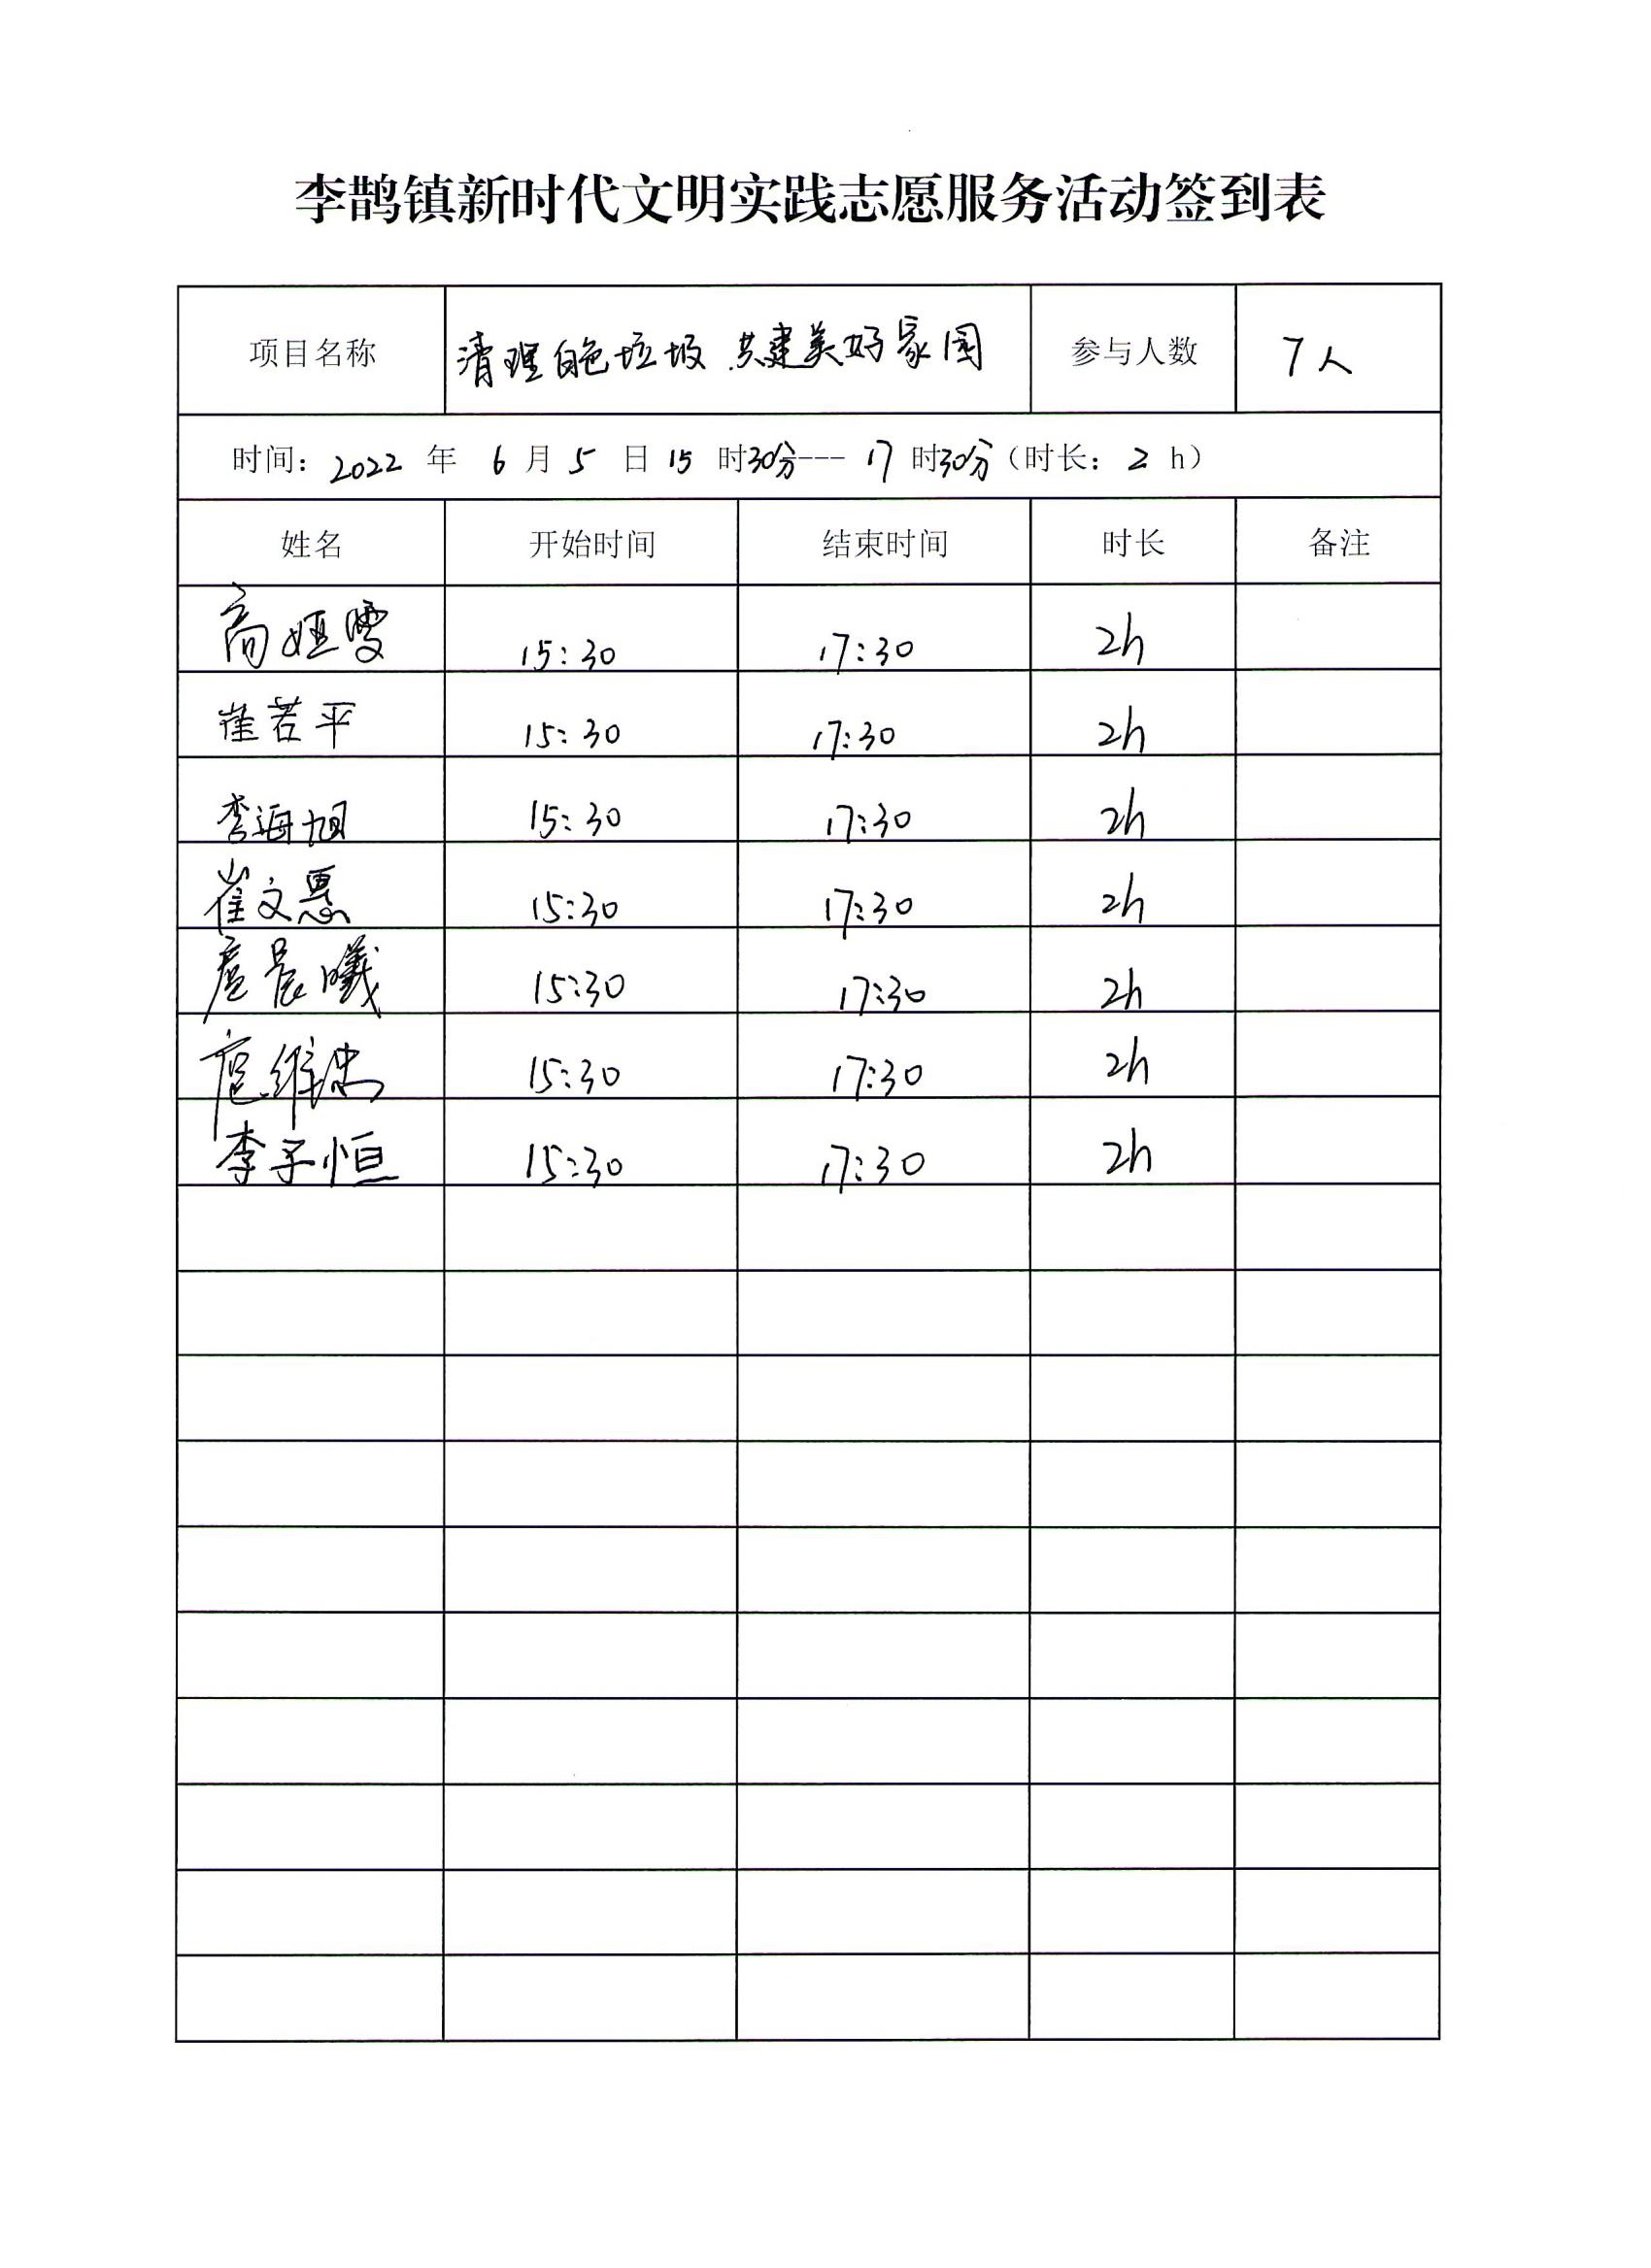 李鹊镇新时代文明实践志愿服务活动签到表
项目名称 清理白色垃圾.共建美好家园 参与人数 7人
时间：2022 年 6 月 5 日 15 时30分--- 17 时30分（时长：2 h）
姓名 开始时间 结束时间 时长 备注
高娅雯 15:30 17:30 2h
崔若平 15:30 17:30 2h
李海旭 15:30 17:30 2h
崔文惠 15:30 17:30 2h
晨曦 15:30 17:30 2h
维忠 15:30 17:30 2h
李子恒 15:30 17:30 2h